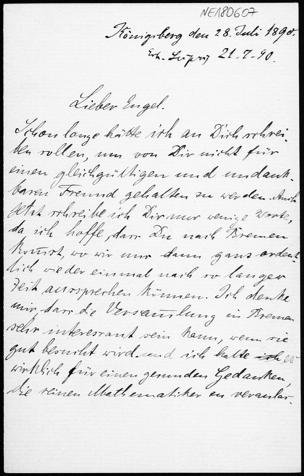 NE180607
Königsberg den 28. Juli 1890.
21.7.90.
Lieber Engel.
Schon lange hätte ich an Dich schrei-
ben sollen, um von Dir nicht für
einen gleichgültigen und undank-
baren Freund gehalten zu werden. Auch
jetzt schreibe ich Dir nur wenige Worte,
da ich hoffe, dass Du nach Bremen
kommst, wo wir uns dann ganz ordent-
lich wieder einmal nach so langer
Zeit aussprechen können. Ich denke
mir, dass die Versammlung in Bremen
sehr interessant sein kann, wenn sie
gut besucht wird und ich halte es
wirklich für einen gesunden Gedanken,
die reinen Mathematiker zu veranlas-